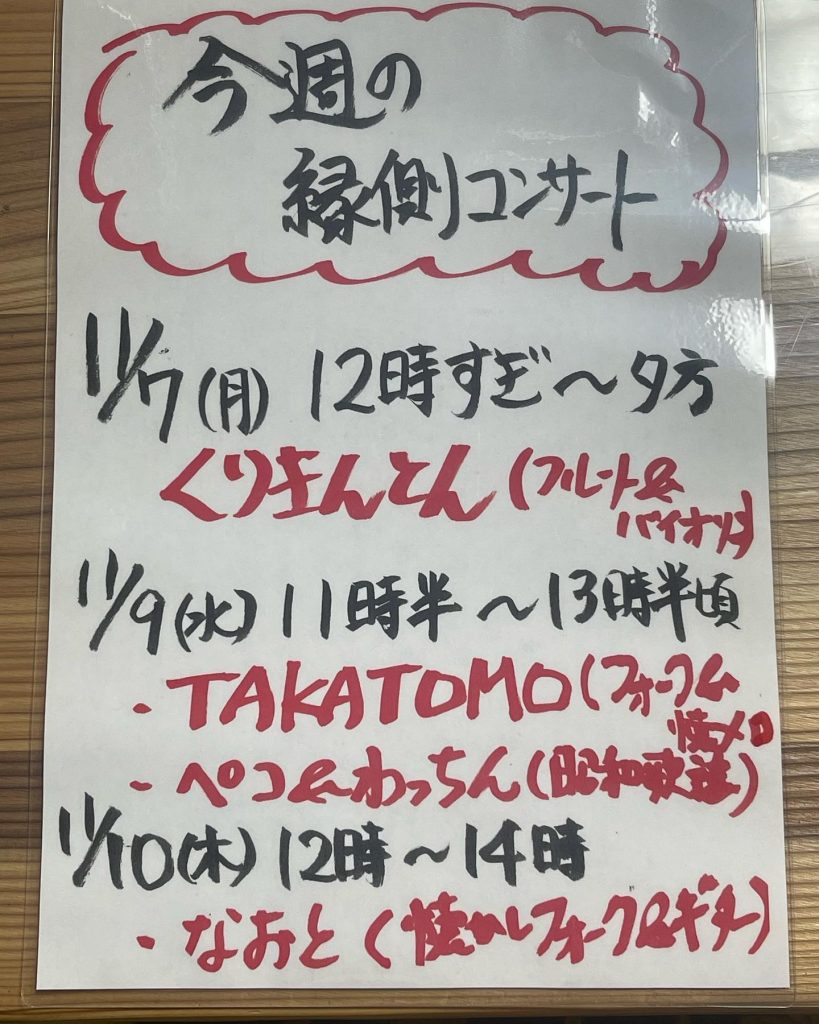 今週の
縁側コンサート
11/7(月) 12時すぎ〜夕方
くりきんとん(フルート&
バイオリン)
11/9(水) 11時半〜13時半頃
・TAKATOMO(フォーク&
懐メロ
・ペコ&わっちん(昭和歌謡)
11/10(木) 12時〜14時
・なおと(懐かしフォーク&ギター)